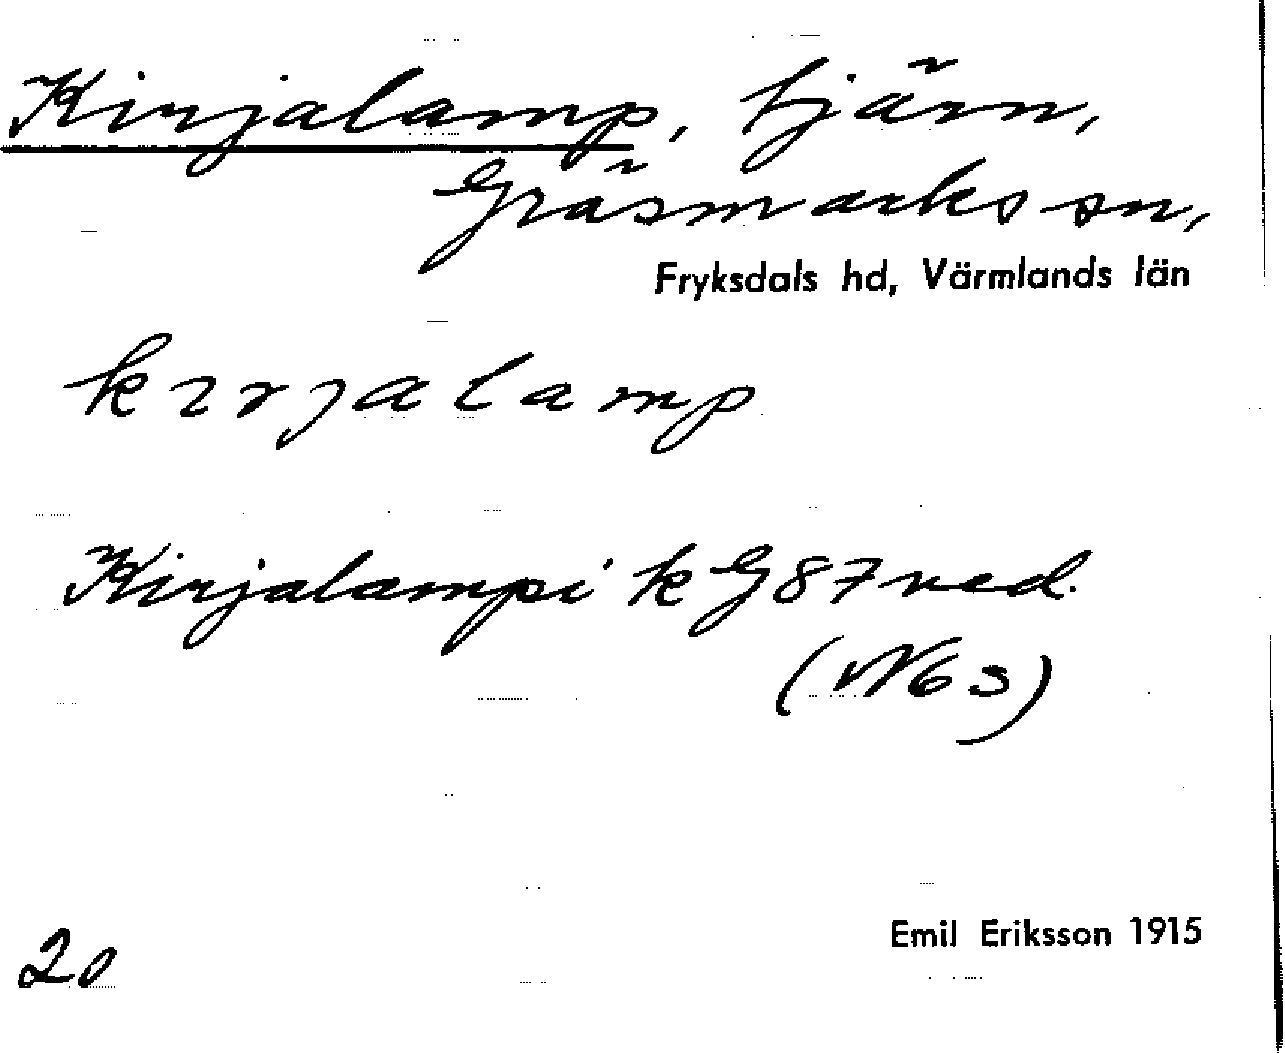 Kirjalamp, tjärn,
Gräsmarks sn,
Fryksdals hd, Värmlands län
kırȷalamp
Kirjalampi k G87 ned.
(N6s)
Emil Eriksson 1915
20